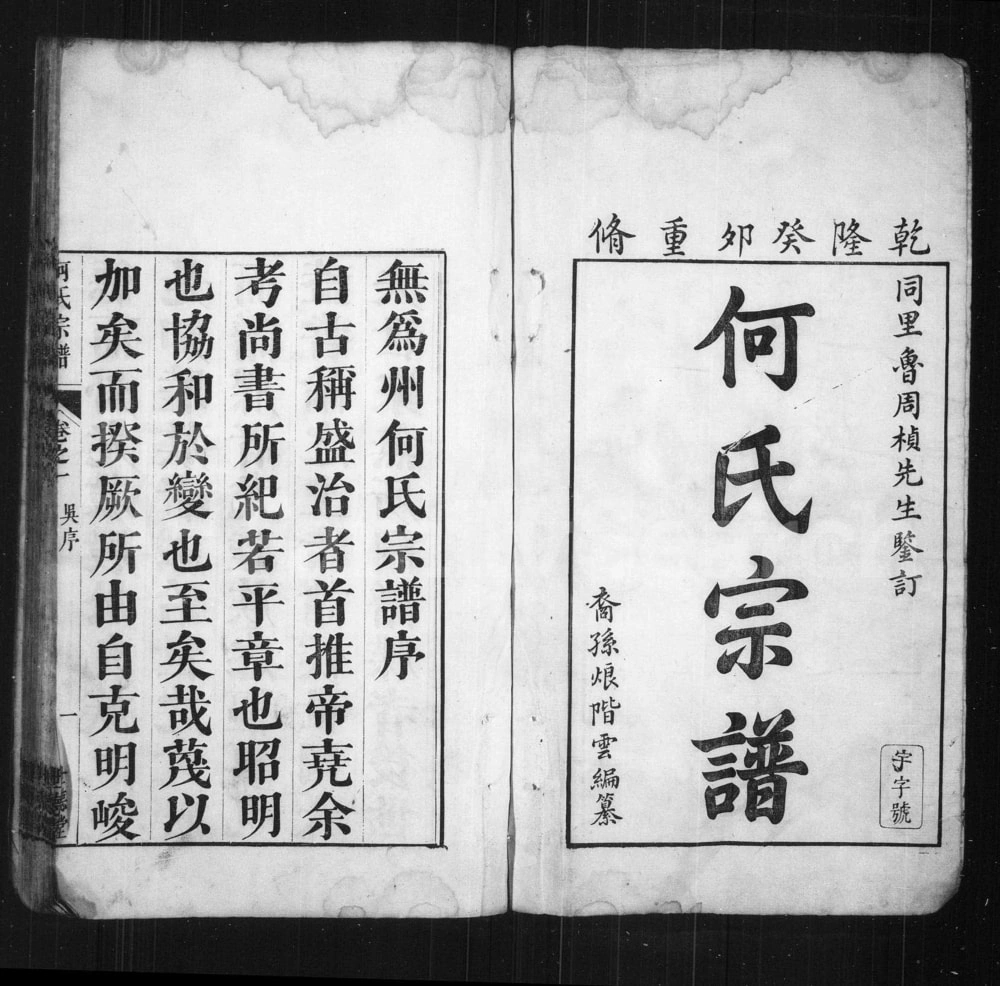 乾隆癸卯重脩
同里魯周楨先生鑒訂
何氏宗譜
裔孫烺階雲編纂
字號
無爲州何氏宗譜序
自古稱盛治者首推帝堯余
考尚書所紀若平章也昭明
也協和於變也至矣哉蔑以
加矣而揆厥所由自克明峻
何氏宗譜
卷之一
吳序
一